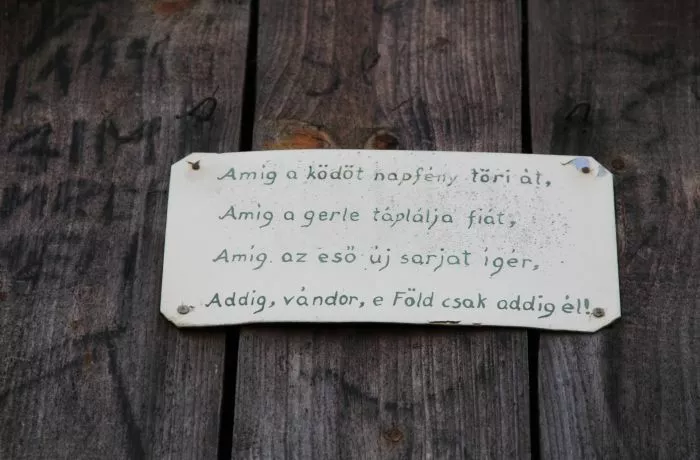 Amig a ködöt napfény töri át,
Amig a gerle táplálja fiát,
Amig az eső új sarjat igér,
Addig, vándor, e Föld csak addig él!